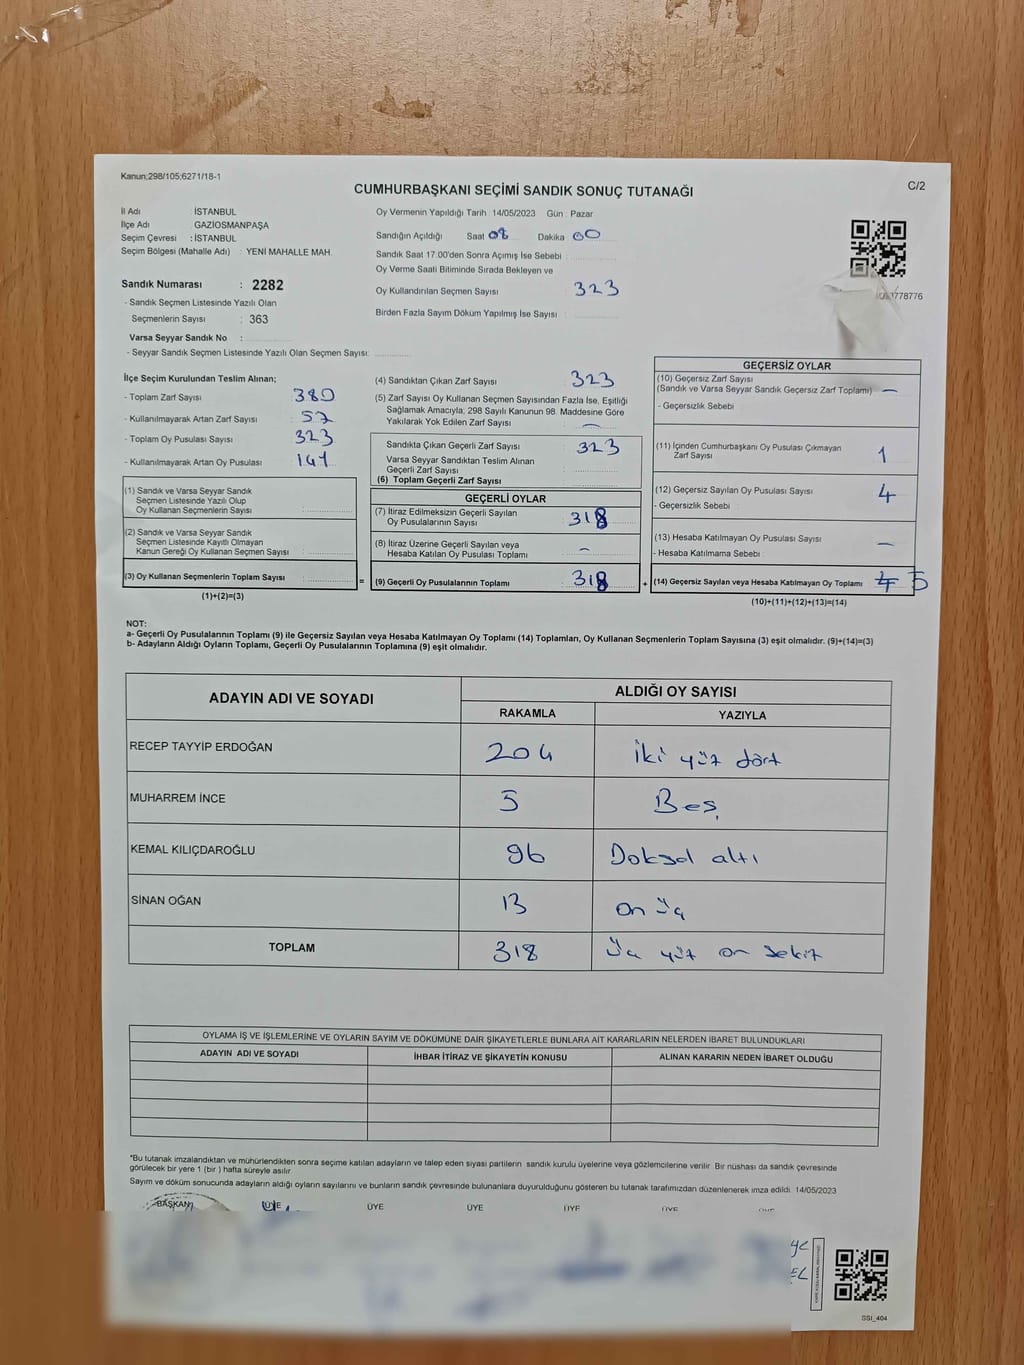 Kanun;298/105;6271/18-1
CUMHURBAŞKANI SEÇİMİ SANDIK SONUÇ TUTANAĞI
C/2
İl Adı İSTANBUL
İlçe Adı GAZİOSMANPAŞA
Seçim Çevresi : İSTANBUL
Seçim Bölgesi (Mahalle Adı) : YENİ MAHALLE MAH.
Sandık Numarası : 2282
- Sandık Seçmen Listesinde Yazılı Olan
Seçmenlerin Sayısı : 363
Varsa Seyyar Sandık No :
- Seyyar Sandık Seçmen Listesinde Yazılı Olan Seçmen Sayısı:
Oy Vermenin Yapıldığı Tarih : 14/05/2023 Gün : Pazar
Sandığın Açıldığı Saat 08 Dakika 00
Sandık Saat 17:00'den Sonra Açımış İse Sebebi :
Oy Verme Saati Bitiminde Sırada Bekleyen ve
Oy Kullandırılan Seçmen Sayısı : 323
Birden Fazla Sayım Döküm Yapılmış İse Sayısı :
778776
İlçe Seçim Kurulundan Teslim Alınan;
- Toplam Zarf Sayısı : 380
- Kullanılmayarak Artan Zarf Sayısı : 57
- Toplam Oy Pusulası Sayısı : 323
- Kullanılmayarak Artan Oy Pusulası : 141
(1) Sandık ve Varsa Seyyar Sandık
Seçmen Listesinde Yazılı Olup
Oy Kullanan Seçmenlerin Sayısı :
(2) Sandık ve Varsa Seyyar Sandık
Seçmen Listesinde Kayıtlı Olmayan
Kanun Gereği Oy Kullanan Seçmen Sayısı :
(3) Oy Kullanan Seçmenlerin Toplam Sayısı : =
(1)+(2)=(3)
(4) Sandıktan Çıkan Zarf Sayısı : 323
(5) Zarf Sayısı Oy Kullanan Seçmen Sayısından Fazla İse, Eşitliği
Sağlamak Amacıyla; 298 Sayılı Kanunun 98. Maddesine Göre
Yakılarak Yok Edilen Zarf Sayısı : -
Sandıkta Çıkan Geçerli Zarf Sayısı : 323
Varsa Seyyar Sandıktan Teslim Alınan
Geçerli Zarf Sayısı :
(6) Toplam Geçerli Zarf Sayısı :
GEÇERLİ OYLAR
(7) İtiraz Edilmeksizin Geçerli Sayılan
Oy Pusulalarının Sayısı : 318
(8) İtiraz Üzerine Geçerli Sayılan veya
Hesaba Katılan Oy Pusulası Toplamı : -
(9) Geçerli Oy Pusulalarının Toplamı : 318 +
GEÇERSİZ OYLAR
(10) Geçersiz Zarf Sayısı
(Sandık ve Varsa Seyyar Sandık Geçersiz Zarf Toplamı) : -
- Geçersizlik Sebebi :
(11) İçinden Cumhurbaşkanı Oy Pusulası Çıkmayan
Zarf Sayısı : 1
(12) Geçersiz Sayılan Oy Pusulası Sayısı : 4
- Geçersizlik Sebebi :
(13) Hesaba Katılmayan Oy Pusulası Sayısı : -
- Hesaba Katılmama Sebebi :
(14) Geçersiz Sayılan veya Hesaba Katılmayan Oy Toplamı : 4 5
(10)+(11)+(12)+(13)=(14)
NOT:
a- Geçerli Oy Pusulalarının Toplamı (9) ile Geçersiz Sayılan veya Hesaba Katılmayan Oy Toplamı (14) Toplamları, Oy Kullanan Seçmenlerin Toplam Sayısına (3) eşit olmalıdır. (9)+(14)=(3)
b- Adayların Aldığı Oyların Toplamı, Geçerli Oy Pusulalarının Toplamına (9) eşit olmalıdır.
ADAYIN ADI VE SOYADI ALDIĞI OY SAYISI
RAKAMLA YAZIYLA
RECEP TAYYİP ERDOĞAN 204 İki yüz dört
MUHARREM İNCE 5 Beş
KEMAL KILIÇDAROĞLU 96 Doksal altı
SİNAN OĞAN 13 on üç
TOPLAM 318 Üç yüz on sekiz
OYLAMA İŞ VE İŞLEMLERİNE VE OYLARIN SAYIM VE DÖKÜMÜNE DAİR ŞİKAYETLERLE BUNLARA AİT KARARLARIN NELERDEN İBARET BULUNDUKLARI
ADAYIN ADI VE SOYADI İHBAR İTİRAZ VE ŞİKAYETİN KONUSU ALINAN KARARIN NEDEN İBARET OLDUĞU
*Bu tutanak imzalandıktan ve mühürlendikten sonra seçime katılan adayların ve talep eden siyasi partilerin sandık kurulu üyelerine veya gözlemcilerine verilir. Bir nüshası da sandık çevresinde
görülecek bir yere 1 (bir ) hafta süreyle asılır.
Sayım ve döküm sonucunda adayların aldığı oyların sayılarını ve bunların sandık çevresinde bulunanlara duyurulduğunu gösteren bu tutanak tarafımızdan düzenlenerek imza edildi. 14/05/2023
BAŞKAN ÜYE ÜYE ÜYE ÜYE ÜYE ÜYE
SSI_404